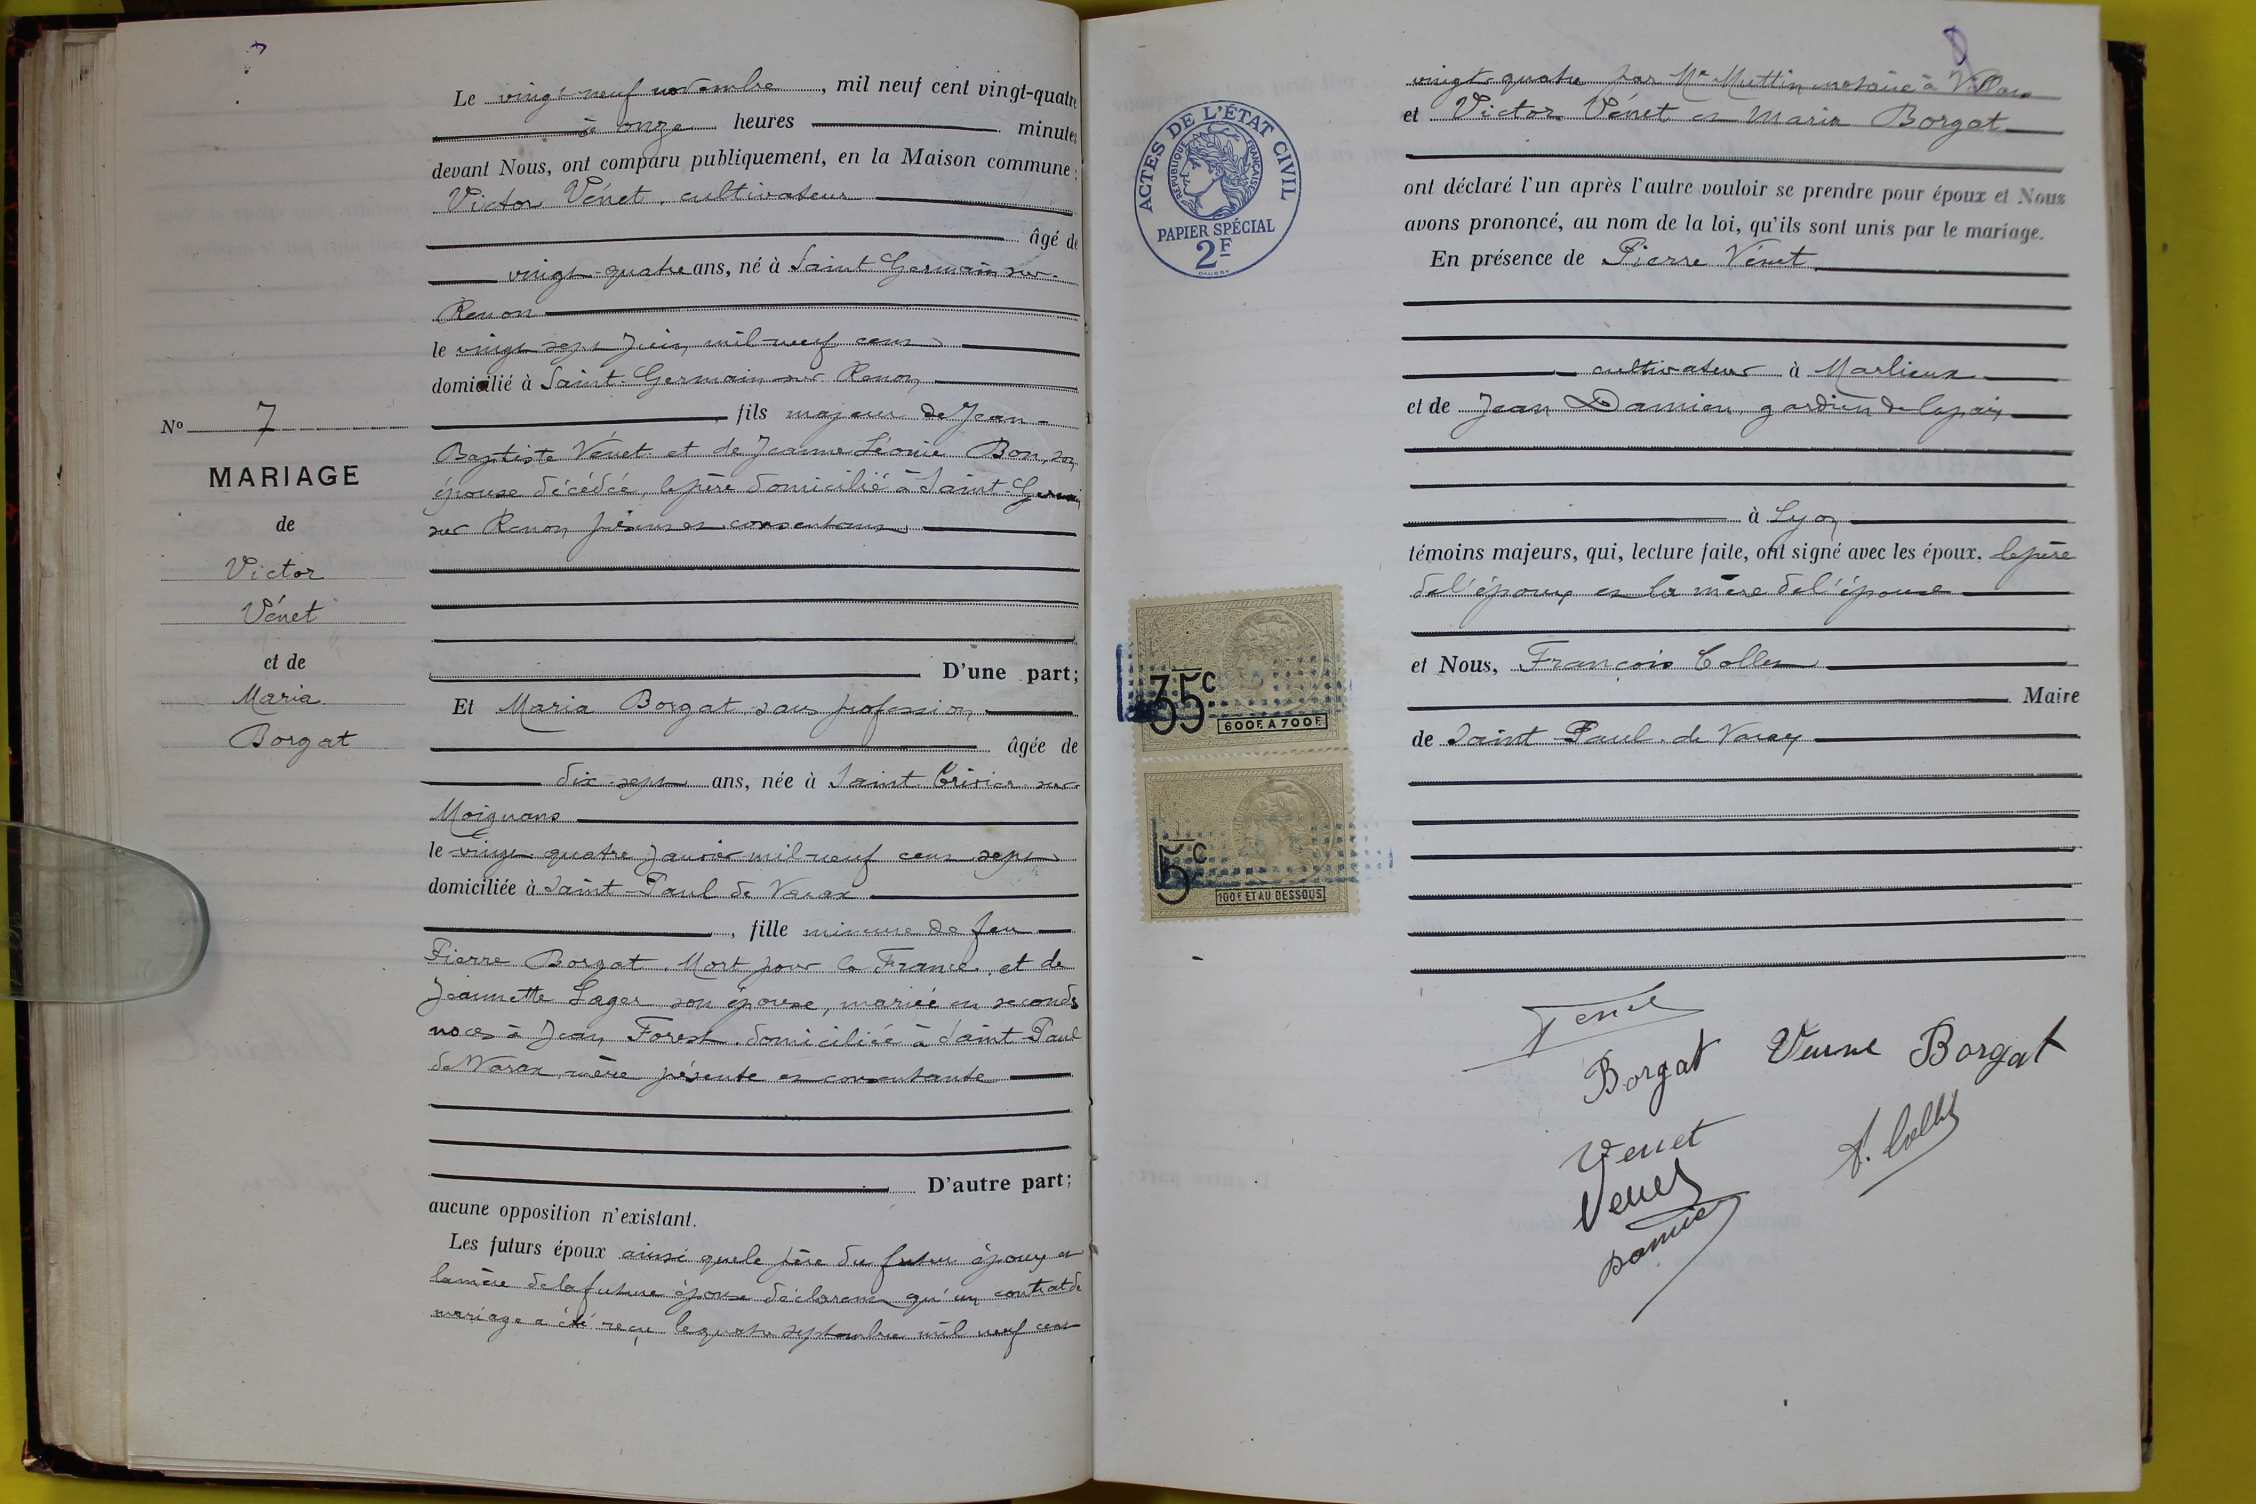 7
Le vingt-neuf novembre, mil neuf cent vingt-quatre
à onze heures minutes
devant Nous, ont comparu publiquement, en la Maison commune :
Victor Vénet, cultivateur
âgé de
vingt-quatre ans, né à Saint Germain sur
Renon
le vingt sept Juin mil neuf cent
domicilié à Saint-Germain sur Renon
fils majeur de Jean-
Baptiste Vénet et de Jeanne Léonie Bon, son
épouse décédée, le père domicilié à Saint-Germain
sur Renon, présent et consentant
D'une part;
Et Maria Borgat, sans profession,
âgée de
dix-sept ans, née à Saint Trivier sur
Moignans
le vingt-quatre Janvier mil neuf cent sept
domiciliée à Saint-Paul de Varax
, fille mineure de feu
Pierre Borgat, Mort pour la France, et de
Jeannette Lager son épouse, mariée en secondes
noces à Jean Forest, domiciliée à Saint-Paul
de Varax, mère présente et consentante
D'autre part;
aucune opposition n'existant.
Les futurs époux ainsi que le père du futur époux et
la mère de la future épouse déclarent qu'un contrat de
mariage a été reçu le quatre septembre mil neuf cent
No 7
MARIAGE
de
Victor
Vénet
et de
Maria
Borgat
8
vingt-quatre par Me Muttin notaire à Villars
et Victor Vénet et Maria Borgat
ont déclaré l'un après l'autre vouloir se prendre pour époux et Nous
avons prononcé, au nom de la loi, qu'ils sont unis par le mariage.
En présence de Pierre Vénet
cultivateur à Marlieux
et de Jean Damien, gardien de la paix
à Lyon
témoins majeurs, qui, lecture faite, ont signé avec les époux, le père
de l'époux et la mère de l'épouse
et Nous, François Collet
Maire
de Saint-Paul de Varax
ACTES DE L'ÉTAT CIVIL
RÉPUBLIQUE FRANÇAISE
PAPIER SPÉCIAL
2F
35c
600F. A 700F.
5c
100F. ET AU DESSOUS
Venet
Borgat Veuve Borgat
Venet
F. Collet
Venet
Damien